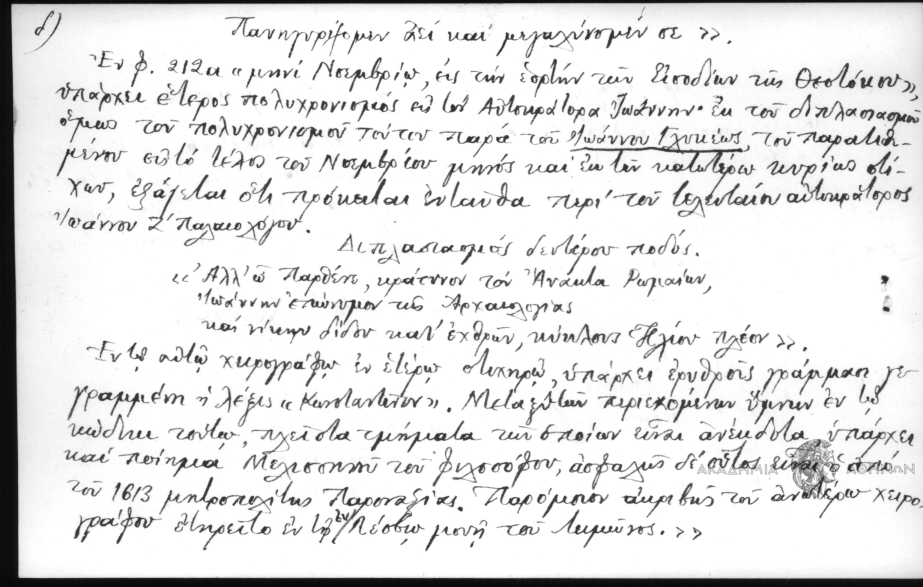 δ)
Πανηγυρίζομεν ἀεὶ καὶ μεγαλύνομέν σε »».
Ἐν φ. 212α «μηνὶ Νοεμβρίῳ, εἰς τὴν ἑορτὴν τῶν Εἰσοδίων τῆς Θεοτόκου»,
ὑπάρχει ἕτερος πολυχρονισμὸς εἰς τὸν Αὐτοκράτορα Ἰωάννην· ἐκ τοῦ διπλασιασμοῦ
ὅμως τοῦ πολυχρονισμοῦ τούτου παρὰ τοῦ Ἰωάννου Γλυκέως, τοῦ παρατιθε-
μένου εἰς τὸ τέλος τοῦ Νοεμβρίου μηνὸς καὶ ἐκ τῶν κατωτέρω κυρίως στί-
χων, ἐξάγεται ὅτι πρόκειται ἐνταῦθα περὶ τοῦ τελευταίου αὐτοκράτορος
Ἰωάννου Ζ' Παλαιολόγου.
Διπλασιασμὸς δευτέρου ποδός.
«Ἀλλ' ὦ Παρθένε, κράτυνον τὸν Ἄνακτα Ῥωμαίων,
Ἰωάννην ἐπώνυμον τῆς Ἀρχαιολογίας
καὶ νίκην δίδου κατ' ἐχθρῶν, κύκλους Ἡλίου πλέον »».
Ἐν τῷ αὐτῷ χειρογράφῳ ἐν ἑτέρῳ στιχηρῷ, ὑπάρχει ἐρυθροῖς γράμμασι γε-
γραμμένη ἡ λέξις «Κωνσταντῖνον». Μεταξὺ τῶν περιεχομένων ὕμνων ἐν τῷ
κώδικι τούτῳ, πλεῖστα τμήματα τῶν ὁποίων εἶναι ἀνέκδοτα ὑπάρχει
καὶ ποίημα Μελισσηνοῦ τοῦ φιλοσόφου, ἀσφαλῶς δὲ οὗτος εἶναι ὁ ἀπὸ
τοῦ 1613 μητροπολίτης Παροναξίας. Παρόμοιον ἀκριβῶς τοῦ ἀνωτέρω χειρο-
γράφου ἐτηρεῖτο ἐν τῇ ἐν Λέσβῳ μονῇ τοῦ Λειμῶνος. »»
ΑΚΑΔΗΜΙΑ ΑΘΗΝΩΝ